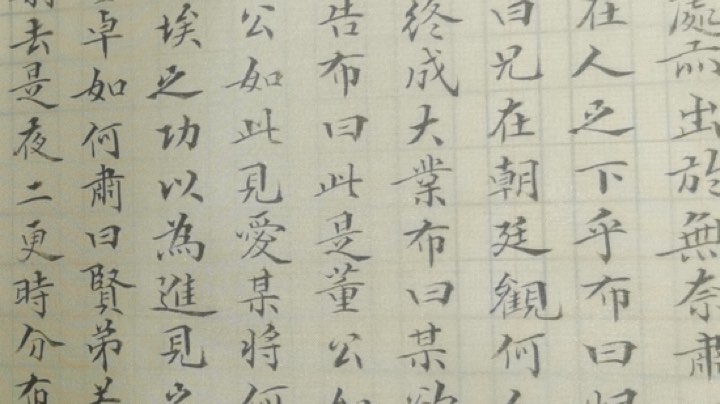 處而出於無奈肅
在人之下乎布曰恨
曰兄在朝廷觀何人
終成大業布曰某欲
告布曰此是董公如
公如此見愛某將何
埃之功以為進見之
卓如何肅曰賢弟若
去是夜二更時分布